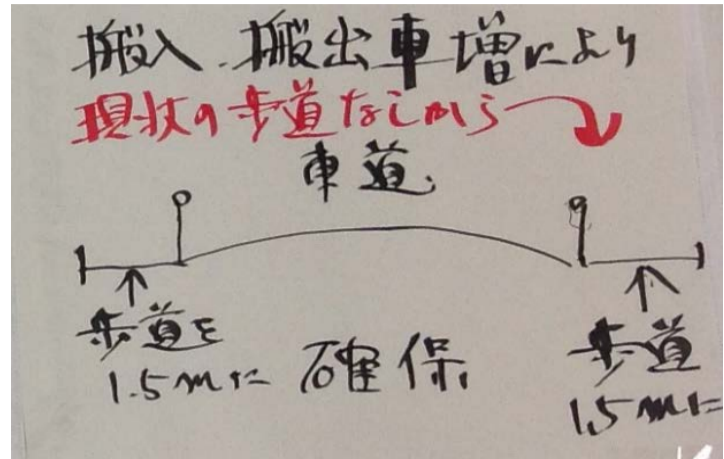 搬入.搬出車増により
現状の歩道なしから
車道
歩道を
1.5mに
確保
歩道
1.5mに